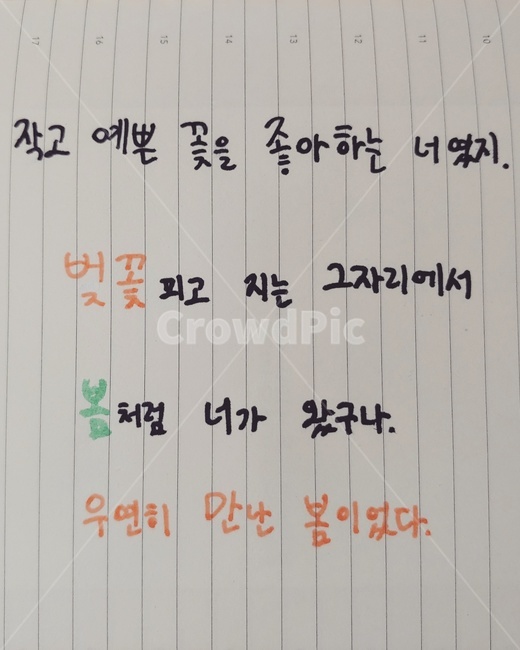 17 16 15 14 13 12 11 10
작고 예쁜 꽃을 좋아하는 너였지.
벚꽃 피고 지는 그자리에서
CrowdPic
봄처럼 너가 왔구나.
우연히 만난 봄이었다.